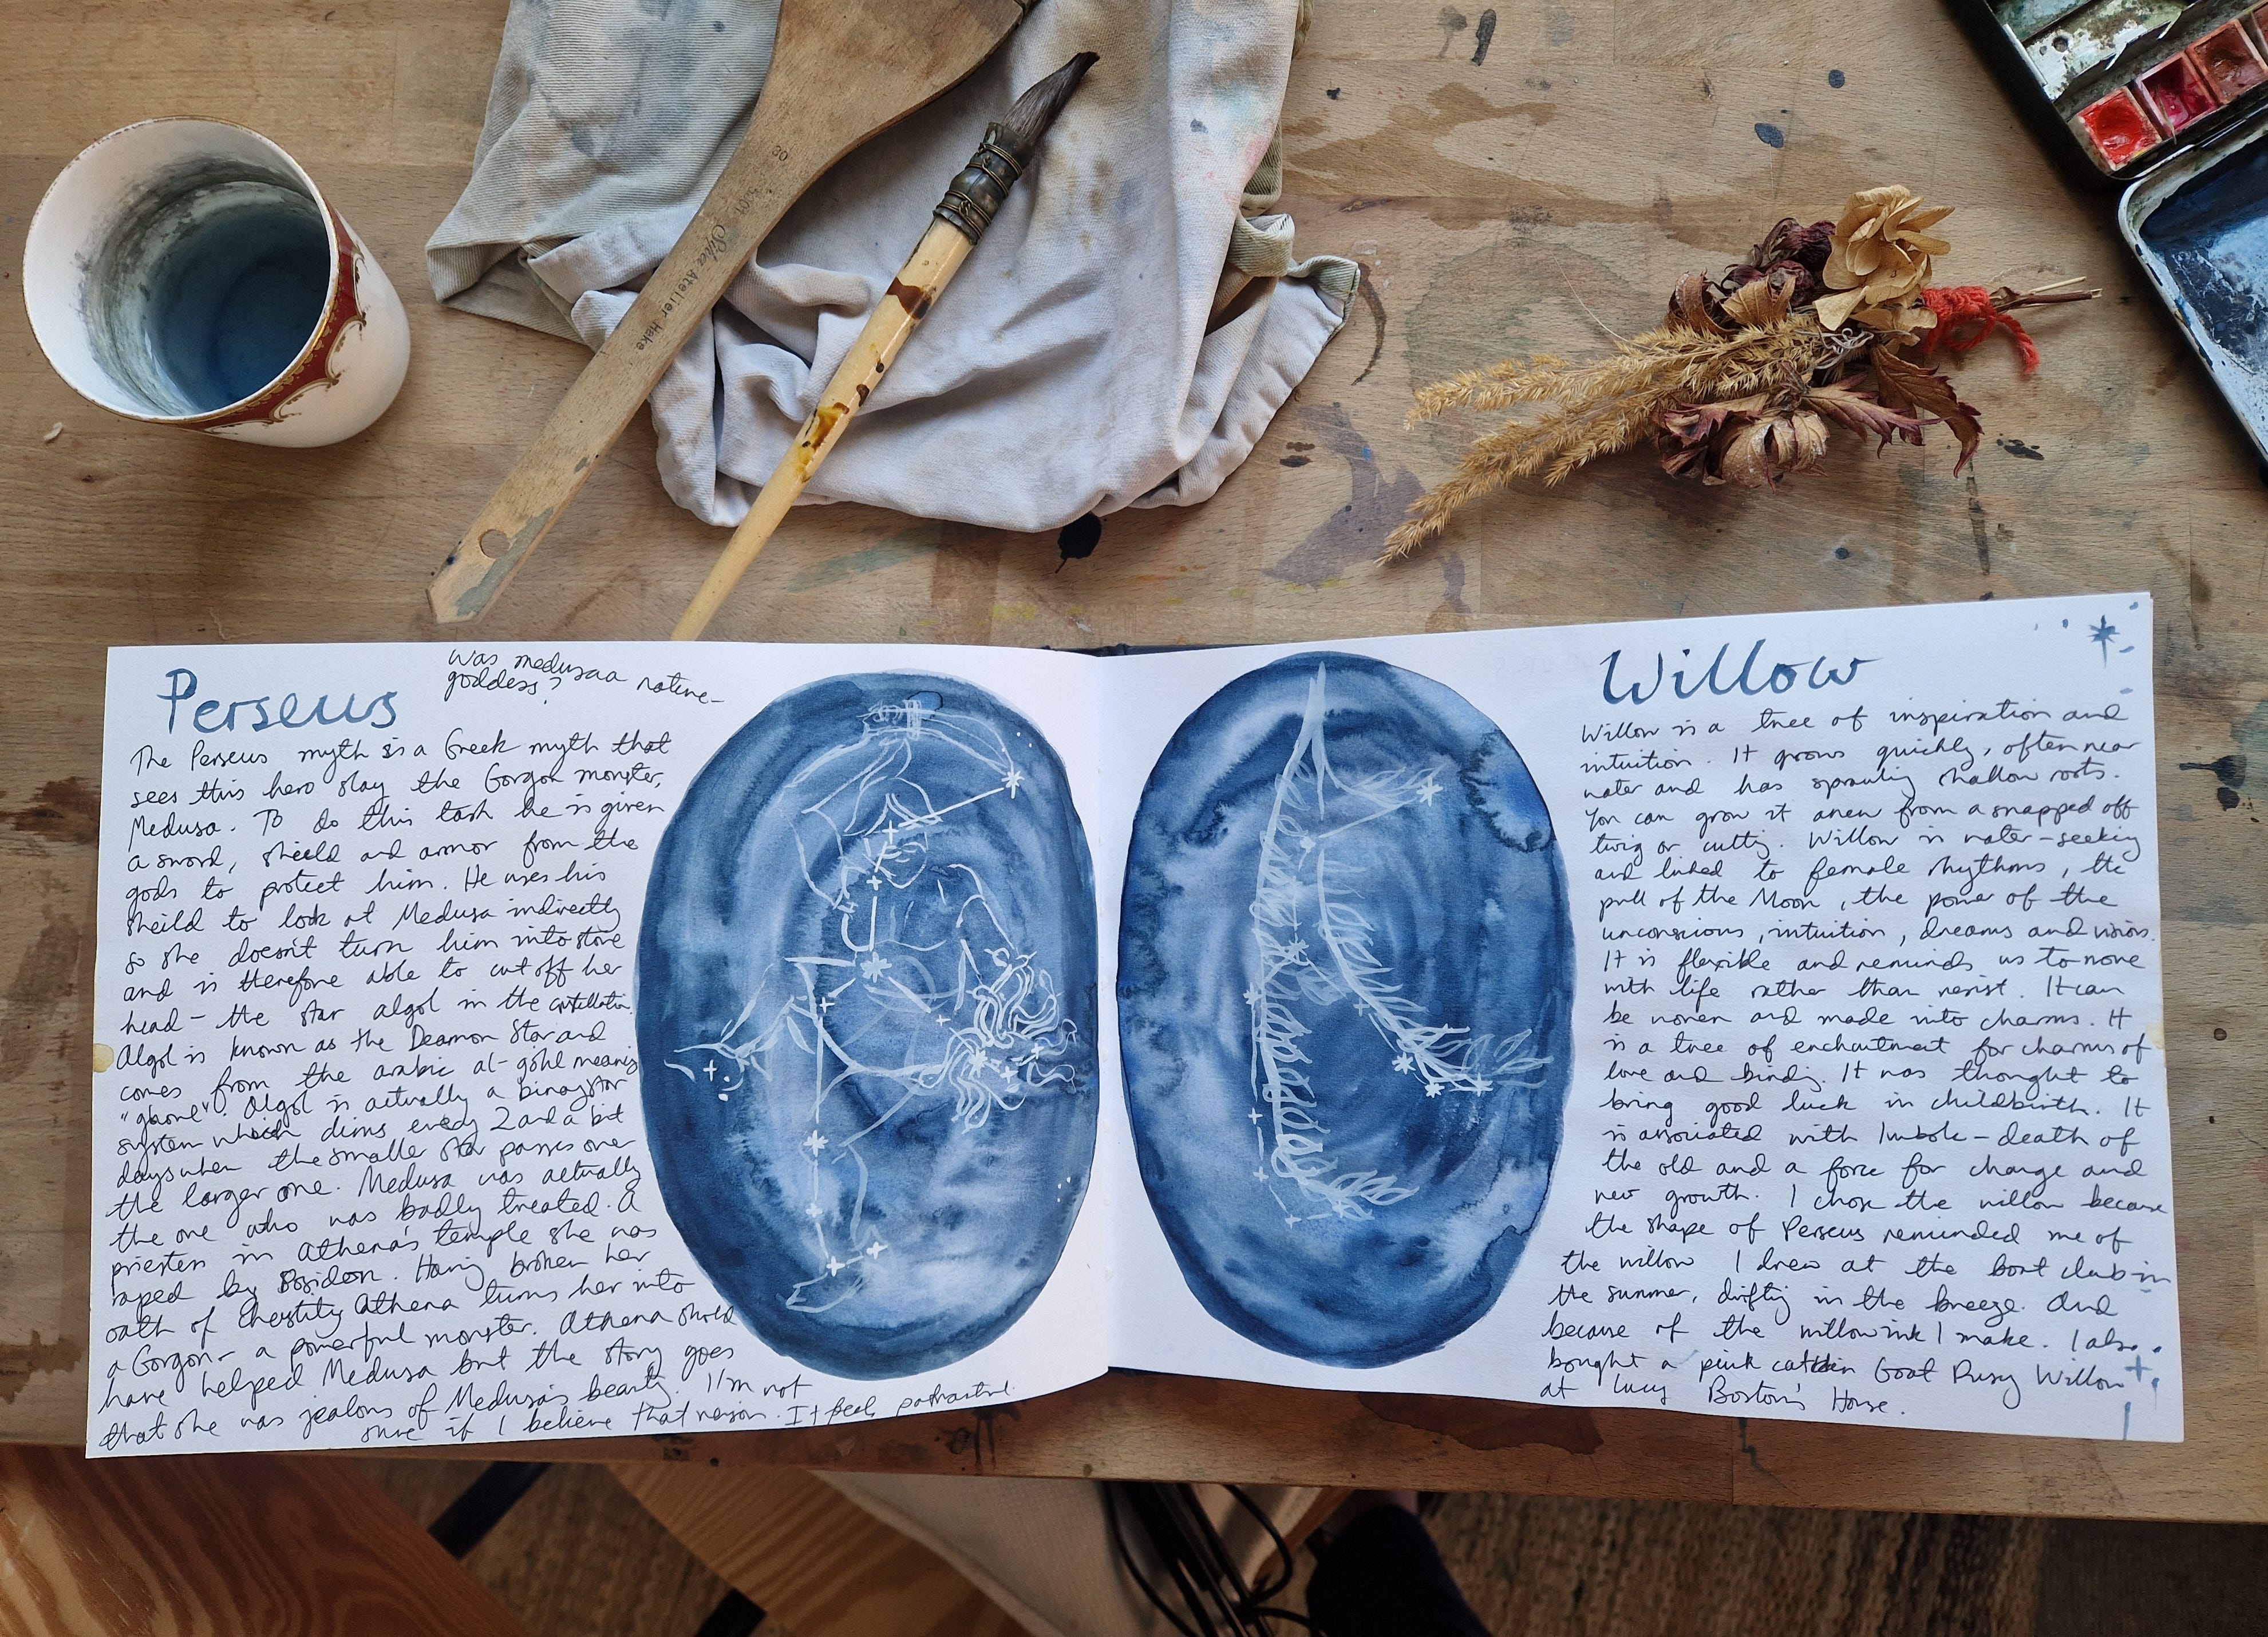 30 5301 Silver Atelier Hake
Perseus
was medusa a native
goddess?
The Perseus myth is a Greek myth that
sees this hero slay the Gorgon monster,
Medusa. To do this task he is given
a sword, shield and armor from the
gods to protect him. He uses his
sheild to look at Medusa indirectly
so she doesn't turn him into stone
and is therefore able to cut off her
head - the star algol in the
Algol is known as the Deamon Star and
comes from the arabic al-gohl meaning
Algol is actually a binary star
system which dims every 2 and a bit
days when the smaller star passes over
the larger one. Medusa was actually
the one who was badly treated. A
priestess in Athena's temple she was
raped by Posideon. Having broken her
oath of Chastity Athena turns her into
a Gorgon - a powerful monster. Athena should
have helped Medusa but the story goes
that she was jealous of Medusa's beauty. I'm not
sure if I believe that version. It feels
Willow
Willow is a tree of inspiration and
intuition. It grows quickly, often near
water and has sprawling shallow roots.
You can grow it anew from a snapped off
twig or cutting. Willow is water-seeking
and linked to female rhythms, the
pull of the Moon, the power of the
unconscious, intuition, dreams and visions.
It is flexible and reminds us to move
with life rather than resist. It can
be woven and made into charms. It
is a tree of enchantment for charms of
love and binding. It was thought to
bring good luck in childbirth. It
is associated with Imbolc - death of
the old and a force for change and
new growth. I chose the willow because
the shape of Perseus reminded me of
the willow I drew at the boat club in
the summer, drifting in the breeze. And
because of the willow ink I make. I also
bought a pink catkin Goat Pussy Willow
at Lucy Boston's House.